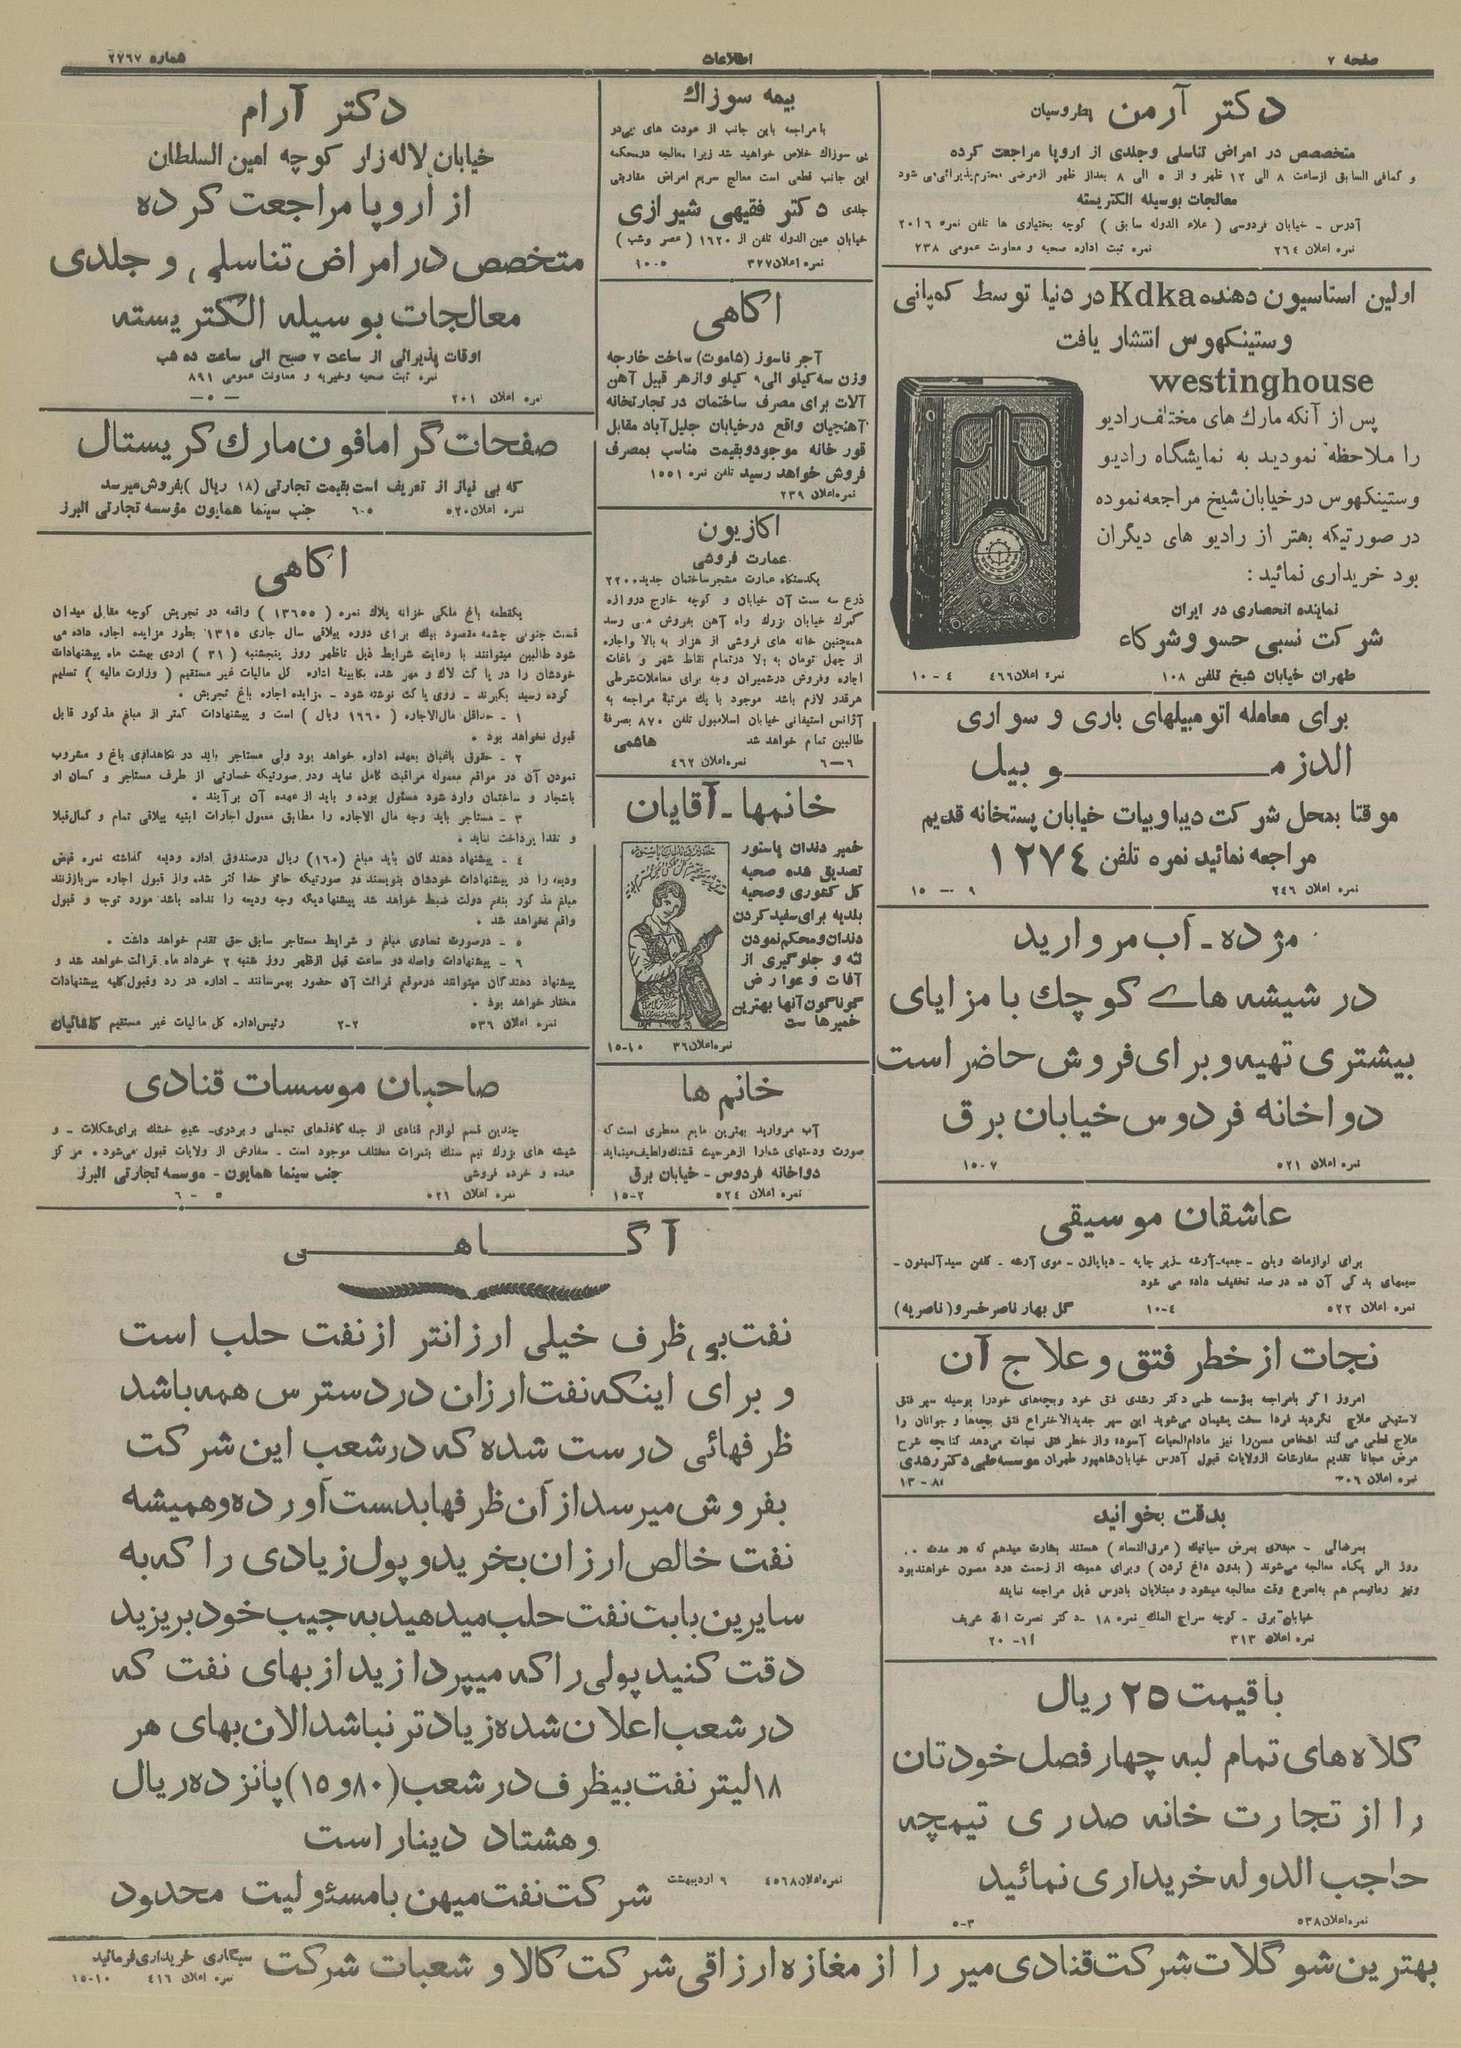 صفحه ۷
اطلاعات
شماره ۲۷۶۷
دکتر آرمن بطروسیان
متخصص در امراض تناسلی وجلدی از اروپا مراجعت کرده
و کمافی السابق ازساعت ۸ الی ۱۲ ظهر و از ۵ الی ۸ بعداز ظهر ازمرضی محترم پذیرائی می شود
معالجات بوسیله الکتریسته
آدرس - خیابان فردوسی ( علاء الدوله سابق ) کوچه بختیاری ها تلفن نمره ۲۰۱۶
نمره اعلان ۲۶۴ نمره ثبت اداره صحیه و معاونت عمومی ۲۳۸
اولین استاسیون دهنده Kdka در دنیا توسط کمپانی
وستینکهوس انتشار یافت
westinghouse
پس از آنکه مارك های مختلف رادیو
را ملاحظه نمودید به نمایشگاه رادیو
وستینکهوس در خیابان شیخ مراجعه نموده
در صورتیکه بهتر از رادیو های دیگران
بود خریداری نمائید :
نماینده انحصاری در ایران
شرکت نسبی حسو و شرکاء
طهران خیابان شیخ تلفن ۱۰۸ نمره اعلان ۴۶۶ ۴ - ۱۰
برای معامله اتومبیلهای باری و سواری
الدزمـــوبیل
موقتا بمحل شرکت دیبا و بیات خیابان پستخانه قدیم
مراجعه نمائید نمره تلفن ۱۲۷۴
نمره اعلان ۲۴۶ ۹ - ۱۵
مژده - آب مروارید
در شیشه های کوچك با مزایای
بیشتری تهیه و برای فروش حاضر است
دواخانه فردوس خیابان برق
نمره اعلان ۵۲۱ ۷-۱۵
عاشقان موسیقی
برای لوازمات ویلن - جعبه-آرشه - زیر چانه - دیاپازن - موی آرشه - کلفن سیدآلمینون -
سیمهای یدکی آن ده در صد تخفیف داده می شود
نمره اعلان ۵۲۲ ۴-۱۰ گل بهار ناصر خسرو (ناصریه)
نجات از خطر فتق و علاج آن
امروز اگر بامراجعه بمؤسسه طبی دکتر رشدی فتق خود و بچه‌های خودرا بوسیله سپر فتق
لاستیکی علاج نگردید فردا سخت پشیمان می‌شوید این سپر جدیدالاختراع فتق بچه‌ها و جوانان را
علاج قطعی می کند اشخاص مسن را نیز مادام‌الحیات آسوده و از خطر فتق نجات می‌دهد کتابچه شرح
مرض مجانا تقدیم سفارشات ازولایات قبول آدرس خیابان شاهپور طهران موسسه طبی دکتر رشدی
نمره اعلان ۳۰۶
بدقت بخوانید
مبتلای بمرض سیاتیك ( عرق‌النساء ) هستند بشارت میدهم که در مدت
روز الی یکماه معالجه می‌شوند ( بدون داغ کردن ) وبرای همیشه از زحمت درد مصون خواهند بود
ونیز رماتیسم هم به‌اسرع وقت معالجه میشود و مبتلایان بادرس ذیل مراجعه نمایند
خیابان برق - کوچه سراج الملك نمره ۱۸ - دکتر نصرت الله شریف
نمره اعلان ۳۱۳
با قیمت ۲۵ ریال
کلاه های تمام لبه چهار فصل خودتان
را از تجارت خانه صدری تیمچه
حاجب الدوله خریداری نمائید
نمره اعلان ۵۳۸ ۳-۵
بیمه سوزاك
با مراجعه باین جانب از عودت های پی در
پی سوزاك خلاص خواهید شد زیرا معالجه درمحکمه
این جانب قطعی است معالج سریع امراض مقاربتی
جلدی دکتر فقیهی شیرازی
خیابان عین الدوله تلفن از ۱۶۲۰ ( عصر وشب )
نمره اعلان ۳۲۷ ۵-۱۰
اگاهی
آجر ناسوز (شاموت) ساخت خارجه
وزن سه کیلو الی ۹ کیلو وازهر قبیل آهن
آلات برای مصرف ساختمان در تجارتخانه
آهنچیان واقع درخیابان جلیل آباد مقابل
قورخانه موجود و بقیمت مناسب بمصرف
فروش خواهد رسید تلفن نمره ۱۵۵۱
نمره اعلان ۲۳۹
اکازیون
عمارت فروشی
یکدستگاه عمارت مشجر ساختمان جدید ۲۲۰۰
ذرع سه سمت آن خیابان و کوچه خارج دروازه
گمرك خیابان بزرك راه آهن بفروش می رسد
همچنین خانه های فروشی از هزار به بالا واجاره
از چهل تومان به بالا درتمام نقاط شهر و باغات
اجاره وفروش درشمیران وجه برای معاملات شرطی
هرقدر لازم باشد موجود با یك مرتبه مراجعه به
آژانس استیفانی خیابان اسلامبول تلفن ۸۷۰ بصرفه
طالبین تمام خواهد شد هاشمی
نمره اعلان ۴۶۲ ۶-۶
خانمها - آقایان
خمیر دندان پاستور
تصدیق شده صحیه
کل کشوری وصحیه
بلدیه برای سفید کردن
دندان ومحکم نمودن
لثه و جلوگیری از
آفات و عوارض
گوناگون آنها بهترین
خمیرها ست
نمره اعلان ۳۶ ۱۰-۱۵
خانم ها
آب مروارید بهترین مایع معطری است که
صورت ودستهای شمارا ازهرحیث قشنك ولطیف مینماید
دواخانه فردوس - خیابان برق
نمره اعلان ۵۲۴ ۲-۱۵
دکتر آرام
خیابان لاله زار کوچه امین السلطان
از اروپا مراجعت کرده
متخصص در امراض تناسلی و جلدی
معالجات بوسیله الکتریسته
اوقات پذیرائی از ساعت ۷ صبح الی ساعت ده شب
نمره ثبت صحیه وخیریه و معاونت عمومی ۸۹۱
نمره اعلان ۲۰۱ - ۵ -
صفحات گرامافون مارك کریستال
که بی نیاز از تعریف است بقیمت تجارتی (۱۸ ریال ) بفروش میرسد
نمره اعلان ۵۲۰ ۵-۶ جنب سینما همایون مؤسسه تجارتی البرز
اگاهی
یکقطعه باغ ملکی خزانه پلاك نمره ( ۱۳۶۵۵ ) واقعه در تجریش کوچه مقابل میدان
قسمت جنوبی چشمه مقصود بیك برای دوره ییلاقی سال جاری ۱۳۱۵ بطور مزایده اجاره داده می
شود طالبین میتوانند با رعایت شرایط ذیل تاظهر روز پنجشنبه ( ۳۱ ) اردی بهشت ماه پیشنهادات
خودشان را در پاکت لاك و مهر شده بکابینه اداره کل مالیات غیر مستقیم ( وزارت مالیه ) تسلیم
کرده رسید بگیرند - روی پاکت نوشته شود - مزایده اجاره باغ تجریش .
۱ - حداقل مال‌الاجاره ( ۱۶۶۰ ریال ) است و پیشنهادات کمتر از مبلغ مذکور قابل
قبول نخواهد بود .
۲ - حقوق باغبان بعهده اداره خواهد بود ولی مستاجر باید در نگاهداری باغ و مشروب
نمودن آن در مواقع معموله مراقبت کامل نماید ودر صورتیکه خسارتی از طرف مستاجر و کسان او
باشجار و ساختمان وارد شود مسئول بوده و باید از عهده آن برآیند .
۳ - مستاجر باید وجه مال الاجاره را مطابق معمول اجارات ابنیه ییلاقی تمام و کمال قبلا
و نقدا پرداخت نماید .
۴ - پیشنهاد دهند گان باید مبلغ (۱۶۰) ریال درصندوق اداره ودیعه گذاشته نمره قبض
ودیعه را در پیشنهادات خودشان بنویسند در صورتیکه حائز حداکثر شده واز قبول اجاره سربازنند
مبلغ مذکور بنفع دولت ضبط خواهد شد پیشنهادیکه وجه ودیعه را نداده باشد مورد توجه و قبول
واقع نخواهد شد .
۵ - درصورت تساوی مبلغ و شرایط مستاجر سابق حق تقدم خواهد داشت .
۶ - پیشنهادات واصله دو ساعت قبل ازظهر روز شنبه ۲ خرداد ماه قرائت خواهد شد و
پیشنهاد دهندگان میتوانند درموقع قرائت آن حضور بهمرسانند - اداره در رد وقبول کلیه پیشنهادات
مختار خواهد بود .
نمره اعلان ۵۳۶ ۲-۲ رئیس اداره کل مالیات غیر مستقیم کاشانیان
صاحبان موسسات قنادی
چندین قسم لوازم قنادی از جمله کاغذهای تجملی و بردری - شیر خشك برای شکلات - و
شیشه های بزرك نیم سنك بنمرات مختلف موجود است - سفارش از ولایات قبول می‌شود . مرکز
عمده و خرده فروشی جنب سینما همایون - موسسه تجارتی البرز
نمره اعلان ۵۲۱ ۵ - ۶
آگـــاهـــی
نفت بی ظرف خیلی ارزانتر از نفت حلب است
و برای اینکه نفت ارزان در دسترس همه باشد
ظرفهائی درست شده که در شعب این شرکت
بفروش میرسد از آن ظرفها بدست آورده و همیشه
نفت خالص ارزان بخرید و پول زیادی را که به
سایرین بابت نفت حلب میدهید به جیب خود بریزید
دقت کنید پولی را که میپردازید از بهای نفت که
در شعب اعلان شده زیادتر نباشد الان بهای هر
۱۸ لیتر نفت بیظرف در شعب (۸۰ و ۱۵) پانزده ریال
و هشتاد دینار است
نمره اعلان ۴۵۶۸ ۹ اردیبهشت شرکت نفت میهن با مسئولیت محدود
بهترین شوگلات شرکت قنادی میر را از مغازه ارزاقی شرکت کالا و شعبات شرکت سیگاری خریداری فرمائید
نمره اعلان ۴۱۶ ۱۰-۱۵